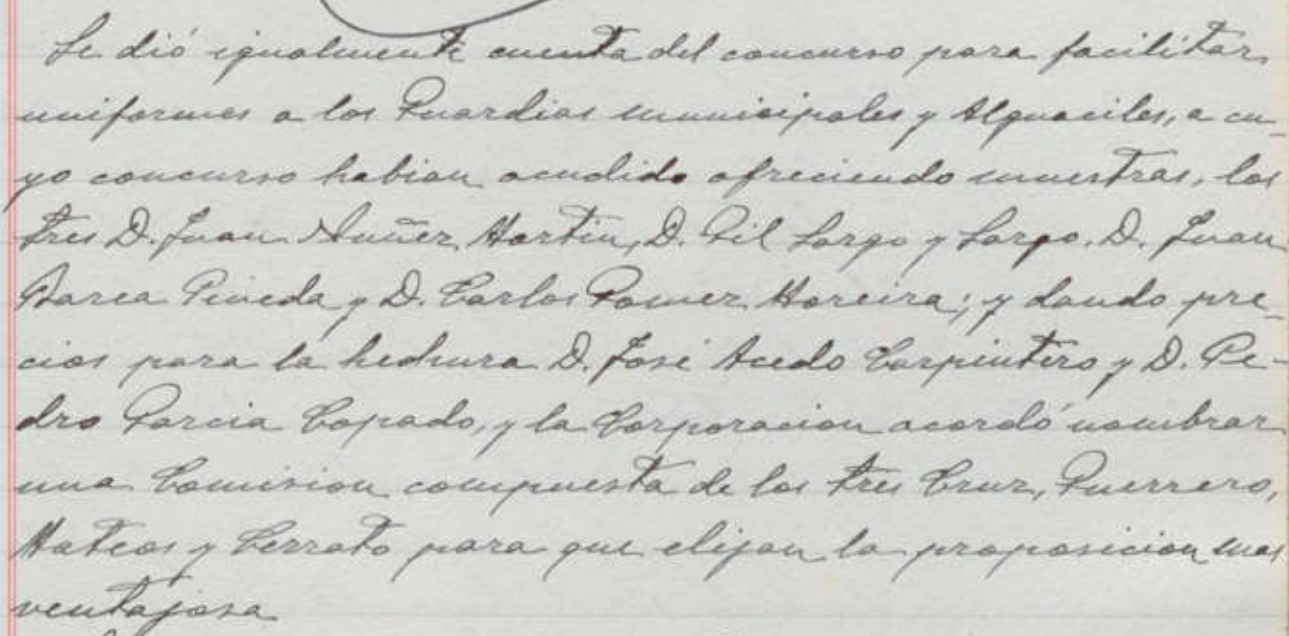 Se dió igualmente cuenta del concurso para facilitar
uniformes a los Guardias municipales y Alguaciles, a cu-
yo concurso habian acudido ofreciendo muestras, los
Sres D. Juan Nuñez Martin, D. Gil Largo y Largo, D. Juan
Barea Pineda y D. Carlos Romer Moreira; y dando pre-
cios para la hechura D. José Acedo Carpintero y D. Pe-
dro Garcia Copado, y la Corporacion acordó nombrar
una Comision compuesta de los Sres Cruz, Guerrero,
Mateos y Cerrato para que elijan la proposicion mas
ventajosa